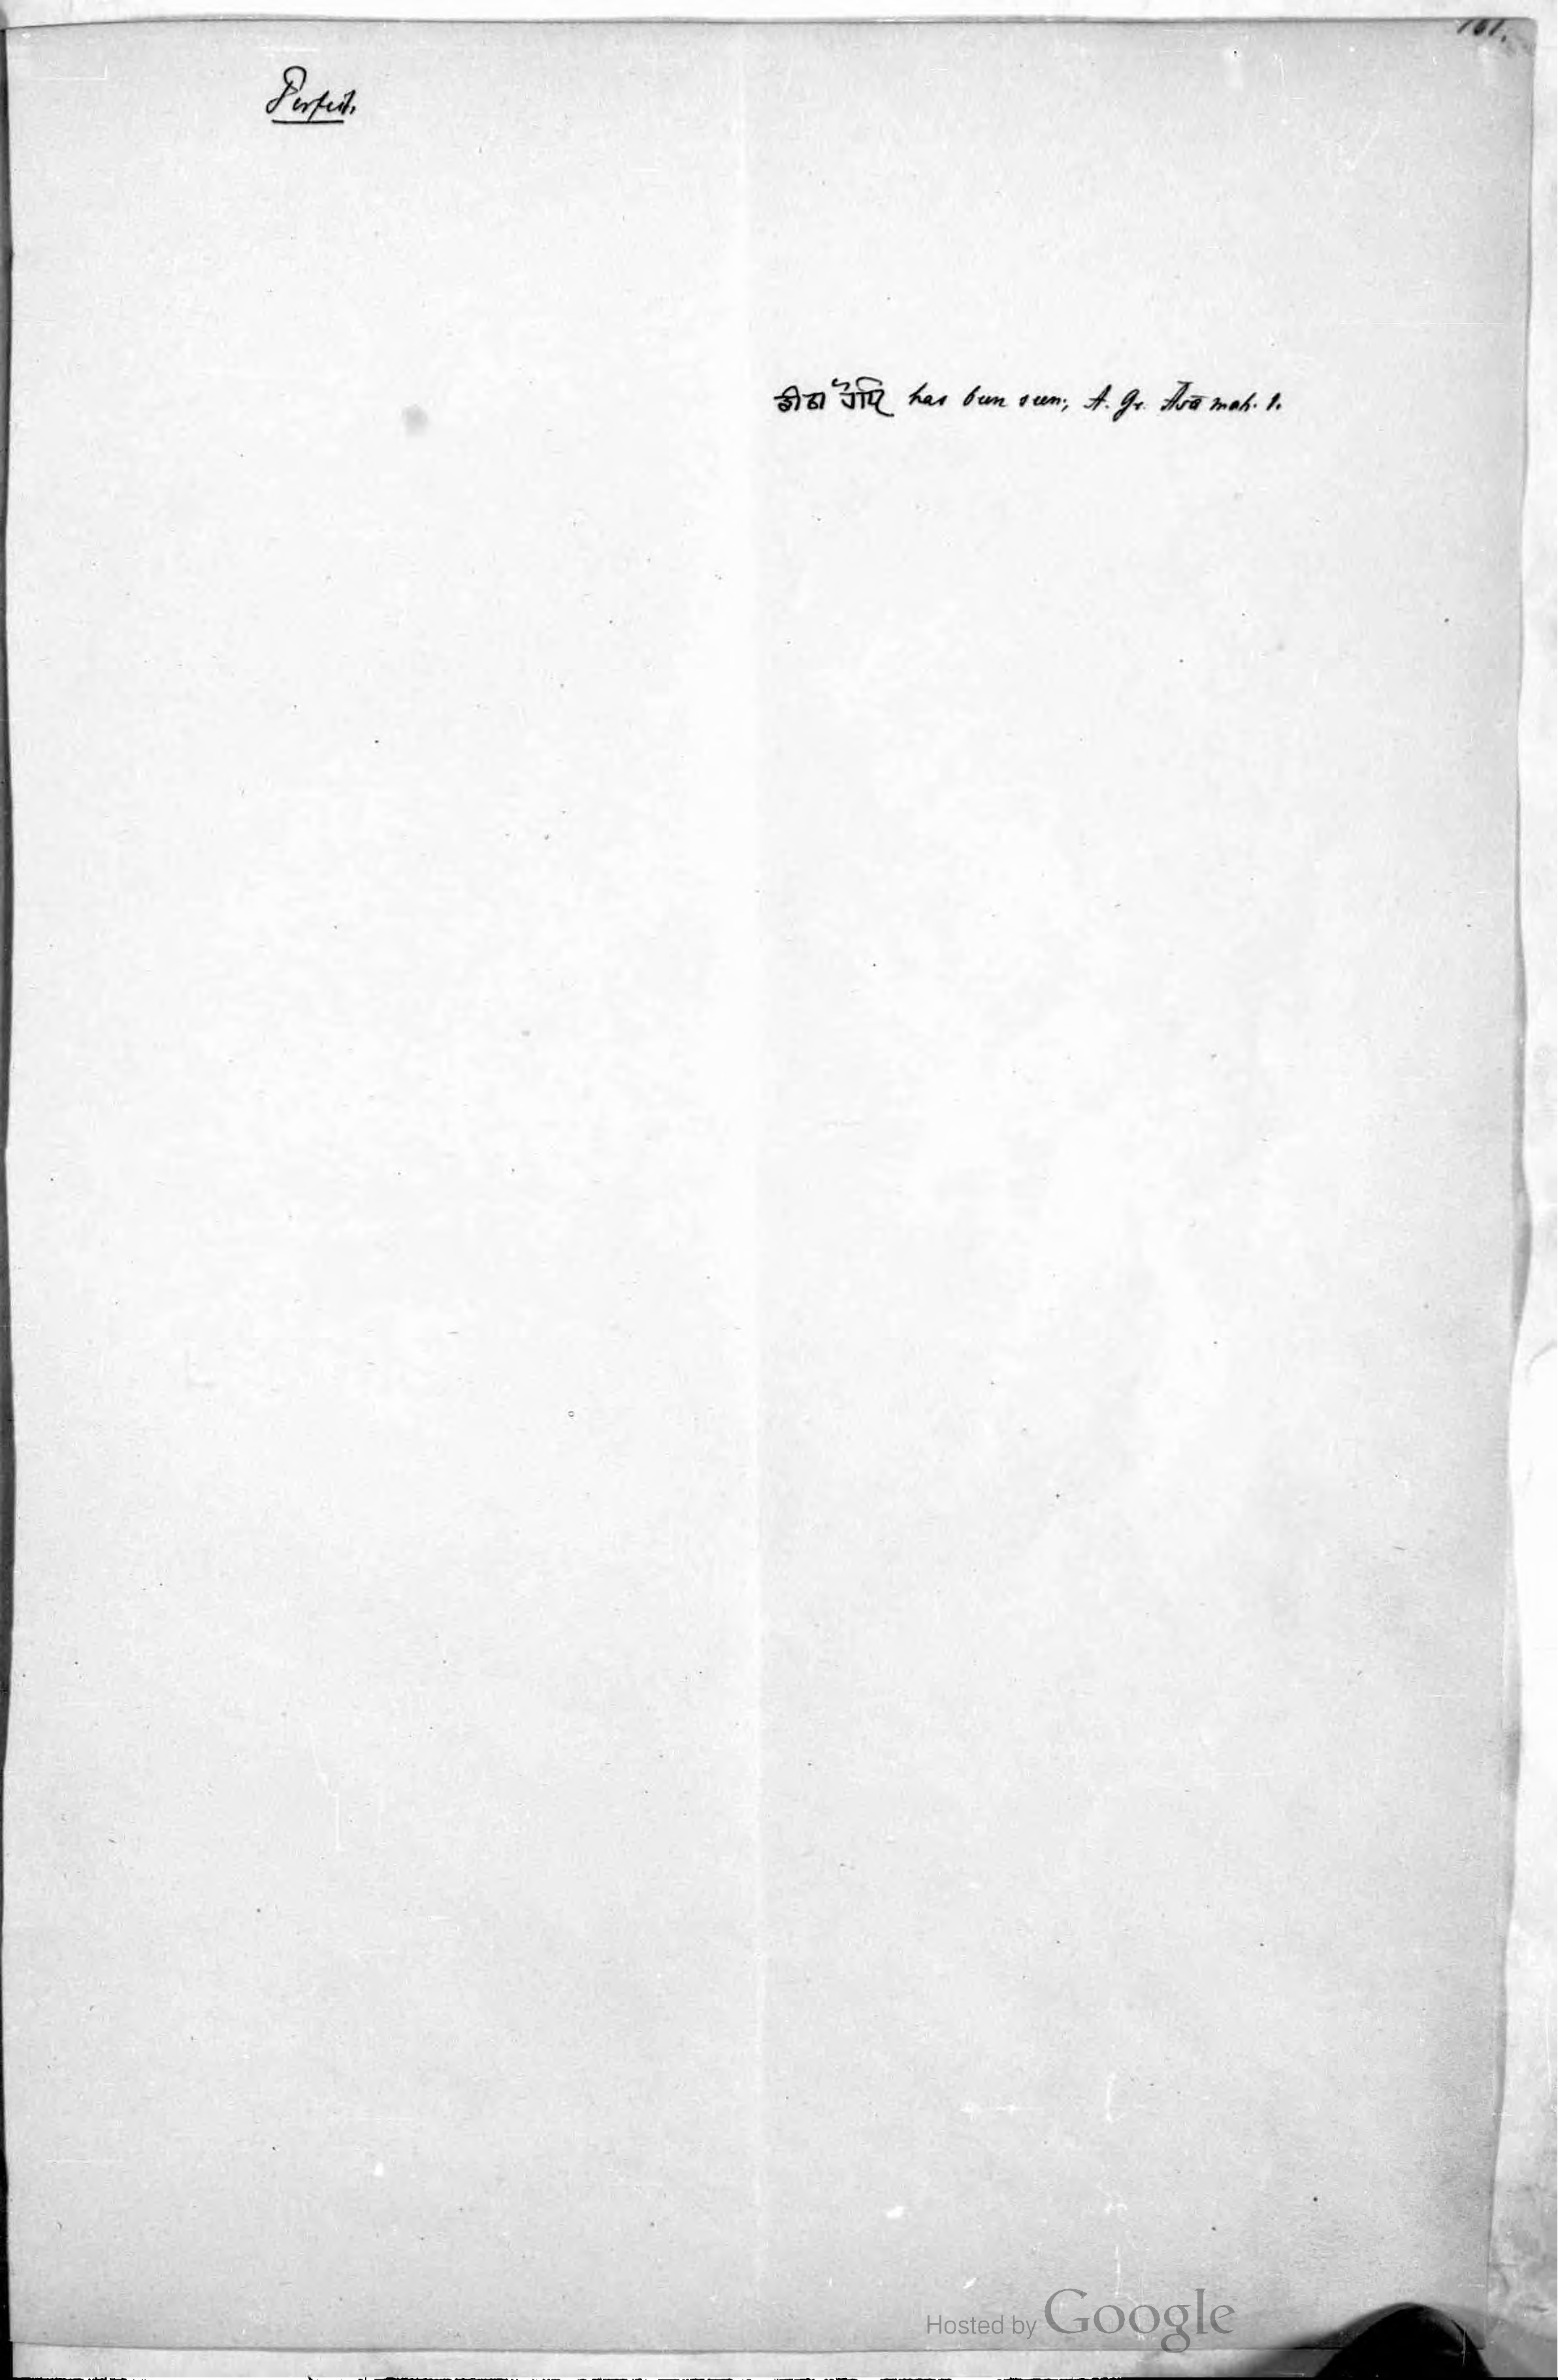 161.
Perfect.
ਡੀਠਾ has been seen; A. Gr. Āsā mah. 1.
Hosted by Google